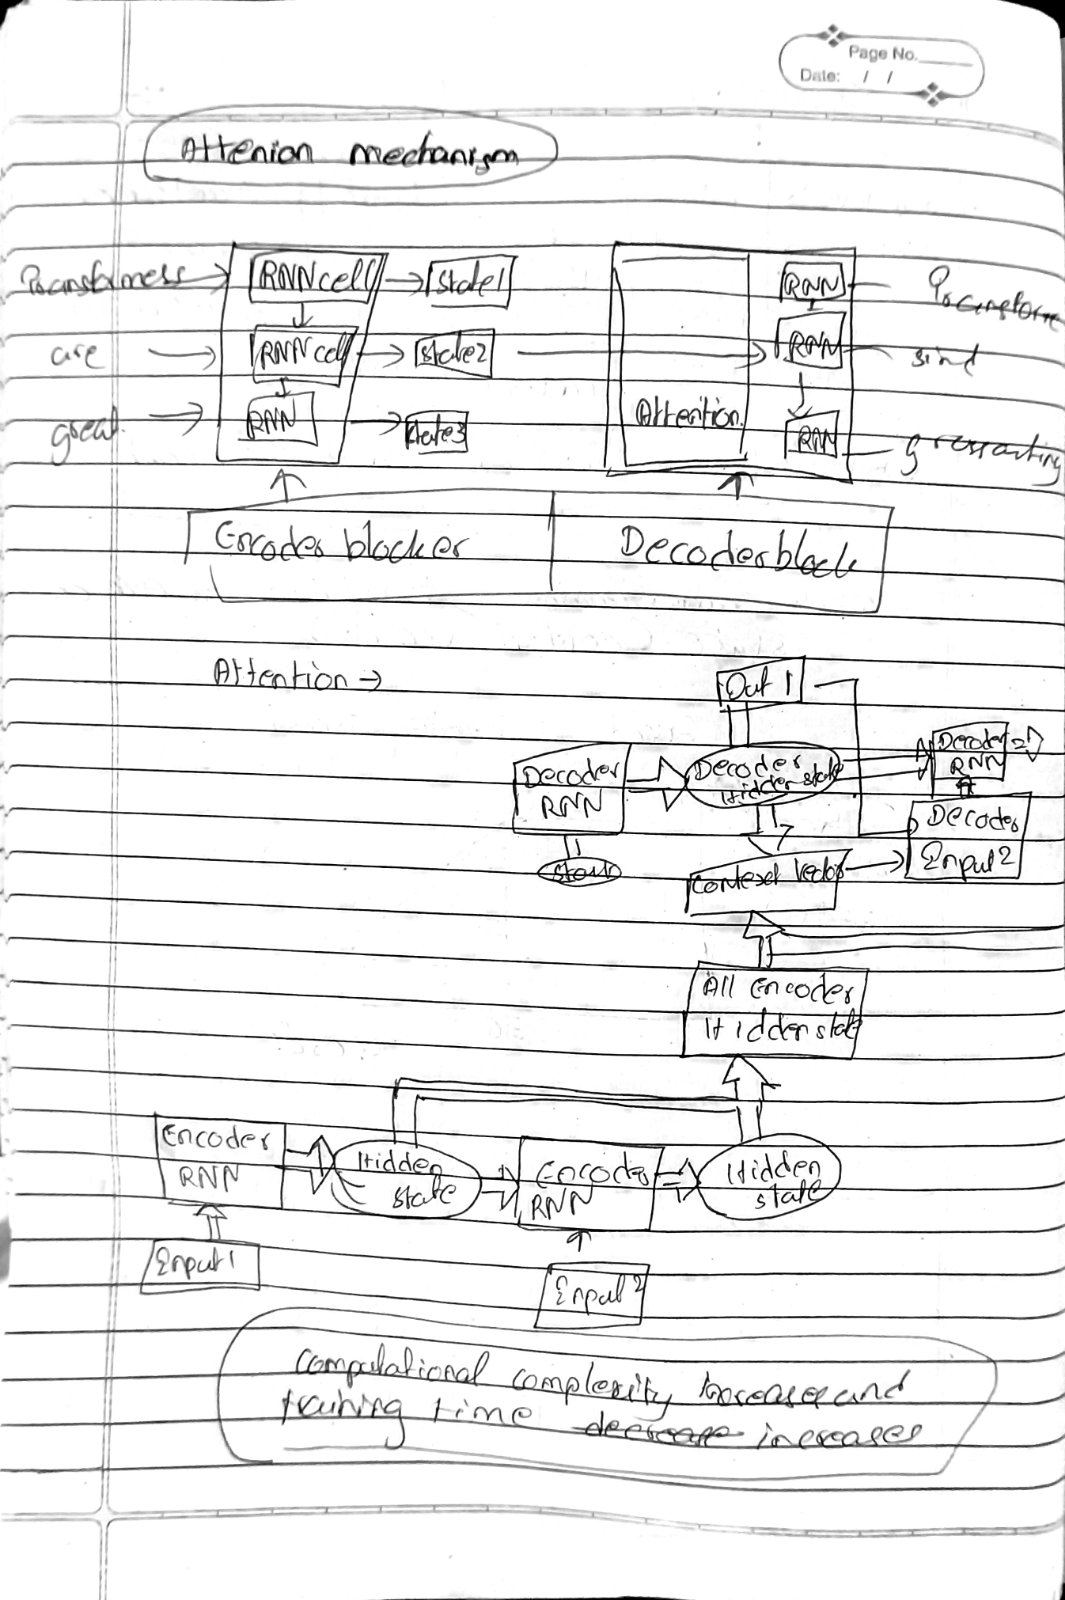 Page No.
Date: / /
Attenion mechanism
Transformess RNN cell state1 RNN Transforme
are RNN cell state2 RNN sind
great RNN state3 Attention RNN
Encoder blocker Decoder block
Attention →
Out 1
Decoder RNN
Decoder Hidden state
Decoder RNN 2
Start
Context Vector
Decoder Input 2
All encoder
Hidden state
Encoder RNN
Hidden state
Encoder RNN
Hidden state
Input 1
Input 2
Computational complexity increases and
training time decrease increases